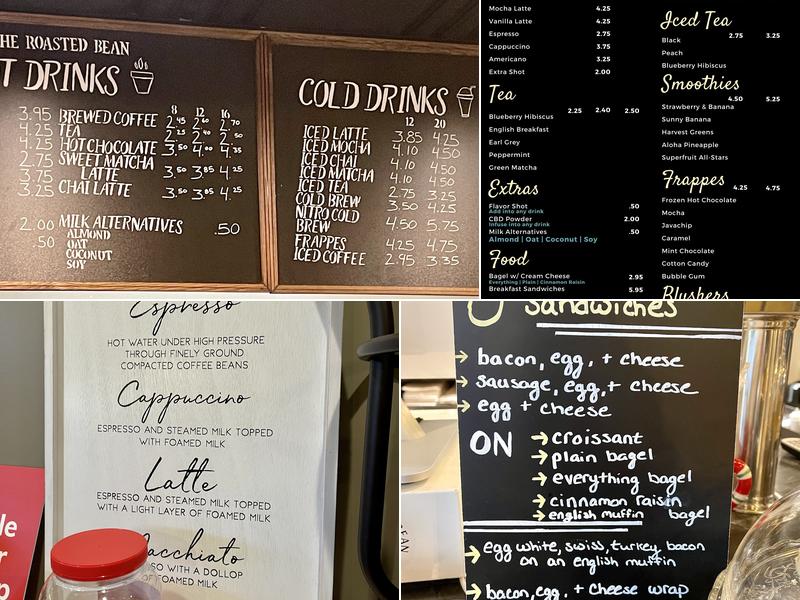 HE ROASTED BEAN
T DRINKS
8 12 16
3.95 BREWED COFFEE 2.45 2.60 2.70
4.25 TEA 2.25 2.40 2.50
4.25 HOT CHOCOLATE 3.50 4.00 4.35
2.75 SWEET MATCHA
3.75 LATTE 3.50 3.85 4.25
3.25 CHAI LATTE 3.50 3.85 4.25
2.00 MILK ALTERNATIVES .50
.50 ALMOND
OAT
COCONUT
SOY
COLD DRINKS
12 20
ICED LATTE 3.85 4.25
ICED MOCHA 4.10 4.50
ICED CHAI 4.10 4.50
ICED MATCHA 4.10 4.50
ICED TEA 2.75 3.25
COLD BREW 3.50 4.25
NITRO COLD
BREW 4.50 5.75
FRAPPES 4.25 4.75
ICED COFFEE 2.95 3.35
Mocha Latte 4.25
Vanilla Latte 4.25
Espresso 2.75
Cappuccino 3.75
Americano 3.25
Extra Shot 2.00
Tea
2.25 2.40 2.50
Blueberry Hibiscus
English Breakfast
Earl Grey
Peppermint
Green Matcha
Extras
Flavor Shot .50
Add into any drink
CBD Powder 2.00
Infuse into any drink
Milk Alternatives .50
Almond | Oat | Coconut | Soy
Food
Bagel w/ Cream Cheese 2.95
Everything | Plain | Cinnamon Raisin
Breakfast Sandwiches 5.95
Iced Tea
2.75 3.25
Black
Peach
Blueberry Hibiscus
Smoothies
4.50 5.25
Strawberry & Banana
Sunny Banana
Harvest Greens
Aloha Pineapple
Superfruit All-Stars
Frappes
4.25 4.75
Frozen Hot Chocolate
Mocha
Javachip
Caramel
Mint Chocolate
Cotton Candy
Bubble Gum
Blushers
Espresso
HOT WATER UNDER HIGH PRESSURE
THROUGH FINELY GROUND
COMPACTED COFFEE BEANS
Cappuccino
ESPRESSO AND STEAMED MILK TOPPED
WITH FOAMED MILK
Latte
ESPRESSO AND STEAMED MILK TOPPED
WITH A LIGHT LAYER OF FOAMED MILK
acchiato
SO WITH A DOLLOP
OF FOAMED MILK
le
r
p
Sandwiches
→ bacon, egg, + cheese
→ sausage, egg, + cheese
→ egg + cheese
ON → croissant
→ plain bagel
→ everything bagel
→ cinnamon raisin bagel
→ english muffin
→ egg white, swiss, turkey bacon
on an english muffin
→ bacon, egg, + cheese wrap
EAN